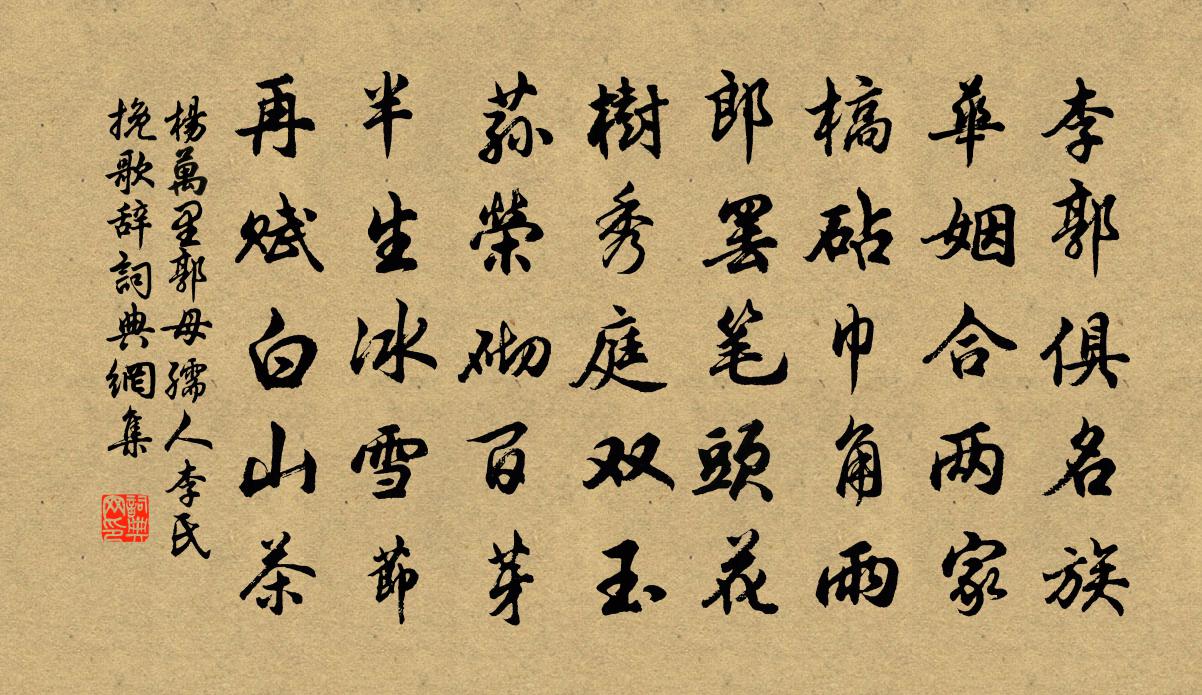 李郭俱名族
華姻合两家
槁砧巾角雨
郎罢笔頭花
樹秀庭双玉
蓀榮砌百芽
半生冰雪節
再赋白山茶
楊萬里郭母孺人李氏
挽歌辞詞典網集
詞典
网印